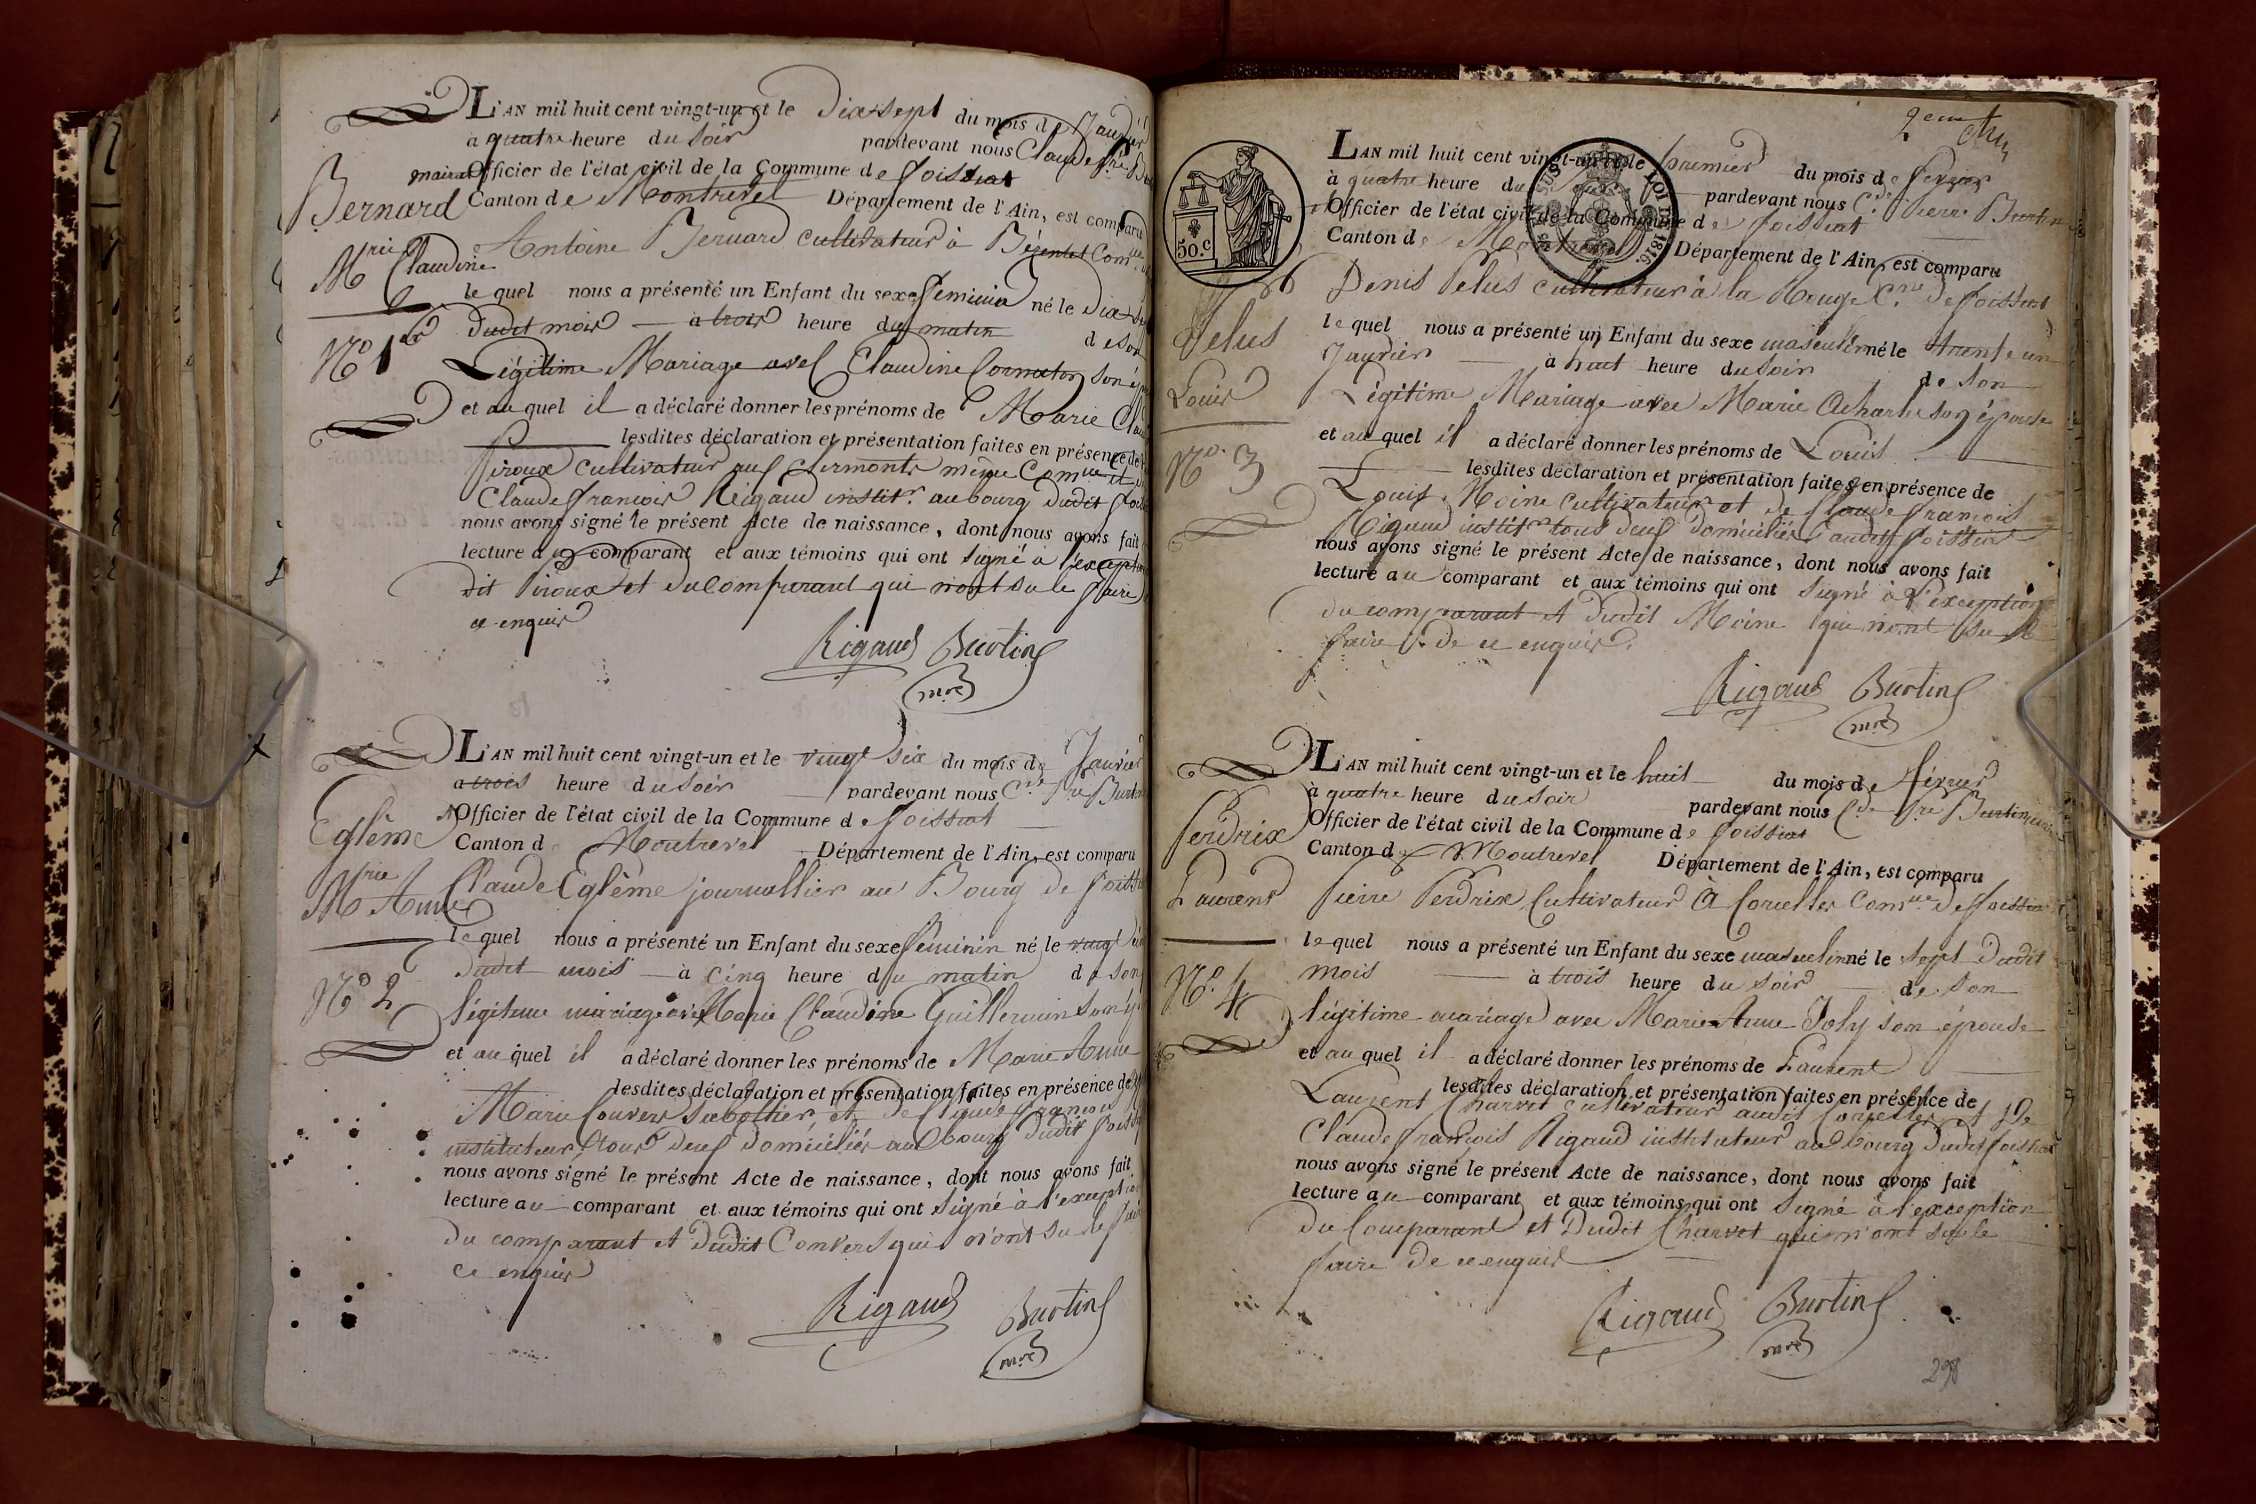 L'AN mil huit cent vingt-un et le Dix sept du mois de Janvier
à quatre heure du Soir pardevant nous Claude Pre
maire Officier de l'état civil de la Commune de foissiat
Canton de Montrevel Département de l'Ain, est comparu
Bernard
Mrie Claudine
No 1er
Antoine Bernard cultivateur à Bézentet Comne
le quel nous a présenté un Enfant du sexe féminin né le Dix
Dudit mois à trois heure du matin de son
Légitime Mariage avec Claudine Cormaton son
et au quel il a déclaré donner les prénoms de Marie
lesdites déclaration et présentation faites en présence de
Piroux cultivateur aux Clermonts même Comne et
Claude françois Rigaud instit.r au bourg dudit
nous avons signé le présent Acte de naissance, dont nous avons fait
lecture au comparant et aux témoins qui ont signé à l'exception
dit Piroux et du Comparant qui n'ont su le faire
ce enquis
Rigaud Burtin
mre
L'AN mil huit cent vingt-un et le vingt six du mois de Janvier
à trois heure du Soir pardevant nous Cde Pre Burtin
Officier de l'état civil de la Commune de foissiat
Canton de Montrevel Département de l'Ain, est comparu
Eglème
Mrie Anne
No 2
Claude Eglème journallier au Bourg de
le quel nous a présenté un Enfant du sexe féminin né le vingt
dudit mois à cinq heure du matin de son
légitime mariage avec Marie Claudine Guillermin son
et au quel il a déclaré donner les prénoms de Marie Anne
lesdites déclaration et présentation faites en présence de
Marie Convers Sabottier, et de Claude françois
instituteur, tous deux domiciliés au bourg dudit
nous avons signé le présent Acte de naissance, dont nous avons fait
lecture au comparant et aux témoins qui ont signé à l'exception
du comparant et dudit Convers qui n'ont su le
ce enquis
Rigaud Burtin
mre
2eme
L'AN mil huit cent vingt-un et le premier du mois de février
à quatre heure du Soir pardevant nous Cde Pierre Burtin
Officier de l'état civil de la Commune de foissiat
Canton de Montrevel Département de l'Ain, est comparu
50.c
LOI DE 1816.
Pelus
Louis
No 3
Denis Pelus cultivateur à la Rouge Cne de foissiat
le quel nous a présenté un Enfant du sexe masculin né le trente un
Janvier à huit heure du Soir de son
Légitime Mariage avec Marie Acharles son épouse
et au quel il a déclaré donner les prénoms de Louis
lesdites déclaration et présentation faites en présence de
Louis Moine cultivateur et de Claude francois
Rigaud instit.r tous deux domiciliés audit foissiat
nous avons signé le présent Acte de naissance, dont nous avons fait
lecture au comparant et aux témoins qui ont signé à l'exception
du comparant et dudit Moine qui n'ont su le
faire de ce enquis.
Rigaud Burtin
mre
L'AN mil huit cent vingt-un et le huit du mois de février
à quatre heure du Soir pardevant nous Cde Pre Burtin
Officier de l'état civil de la Commune de foissiat
Canton de Montrevel Département de l'Ain, est comparu
Perdrix
Laurent
No. 4
Pierre Perdrix Cultivateur à Corcelles Comne de foissiat
le quel nous a présenté un Enfant du sexe masculin né le sept Dudit
mois à trois heure du Soir de son
légitime mariage avec Marie Anne Joly son épouse
et au quel il a déclaré donner les prénoms de Laurent
lesdites déclaration et présentation faites en présence de
Laurent Charvet cultivateur audit Corcelles et De
Claude françois Rigaud instituteur au bourg dudit foissiat
nous avons signé le présent Acte de naissance, dont nous avons fait
lecture au comparant et aux témoins qui ont signé à l'exception
du Comparant et Dudit Charvet qui n'ont su le
faire De ce enquis
Rigaud Burtin
mre
298